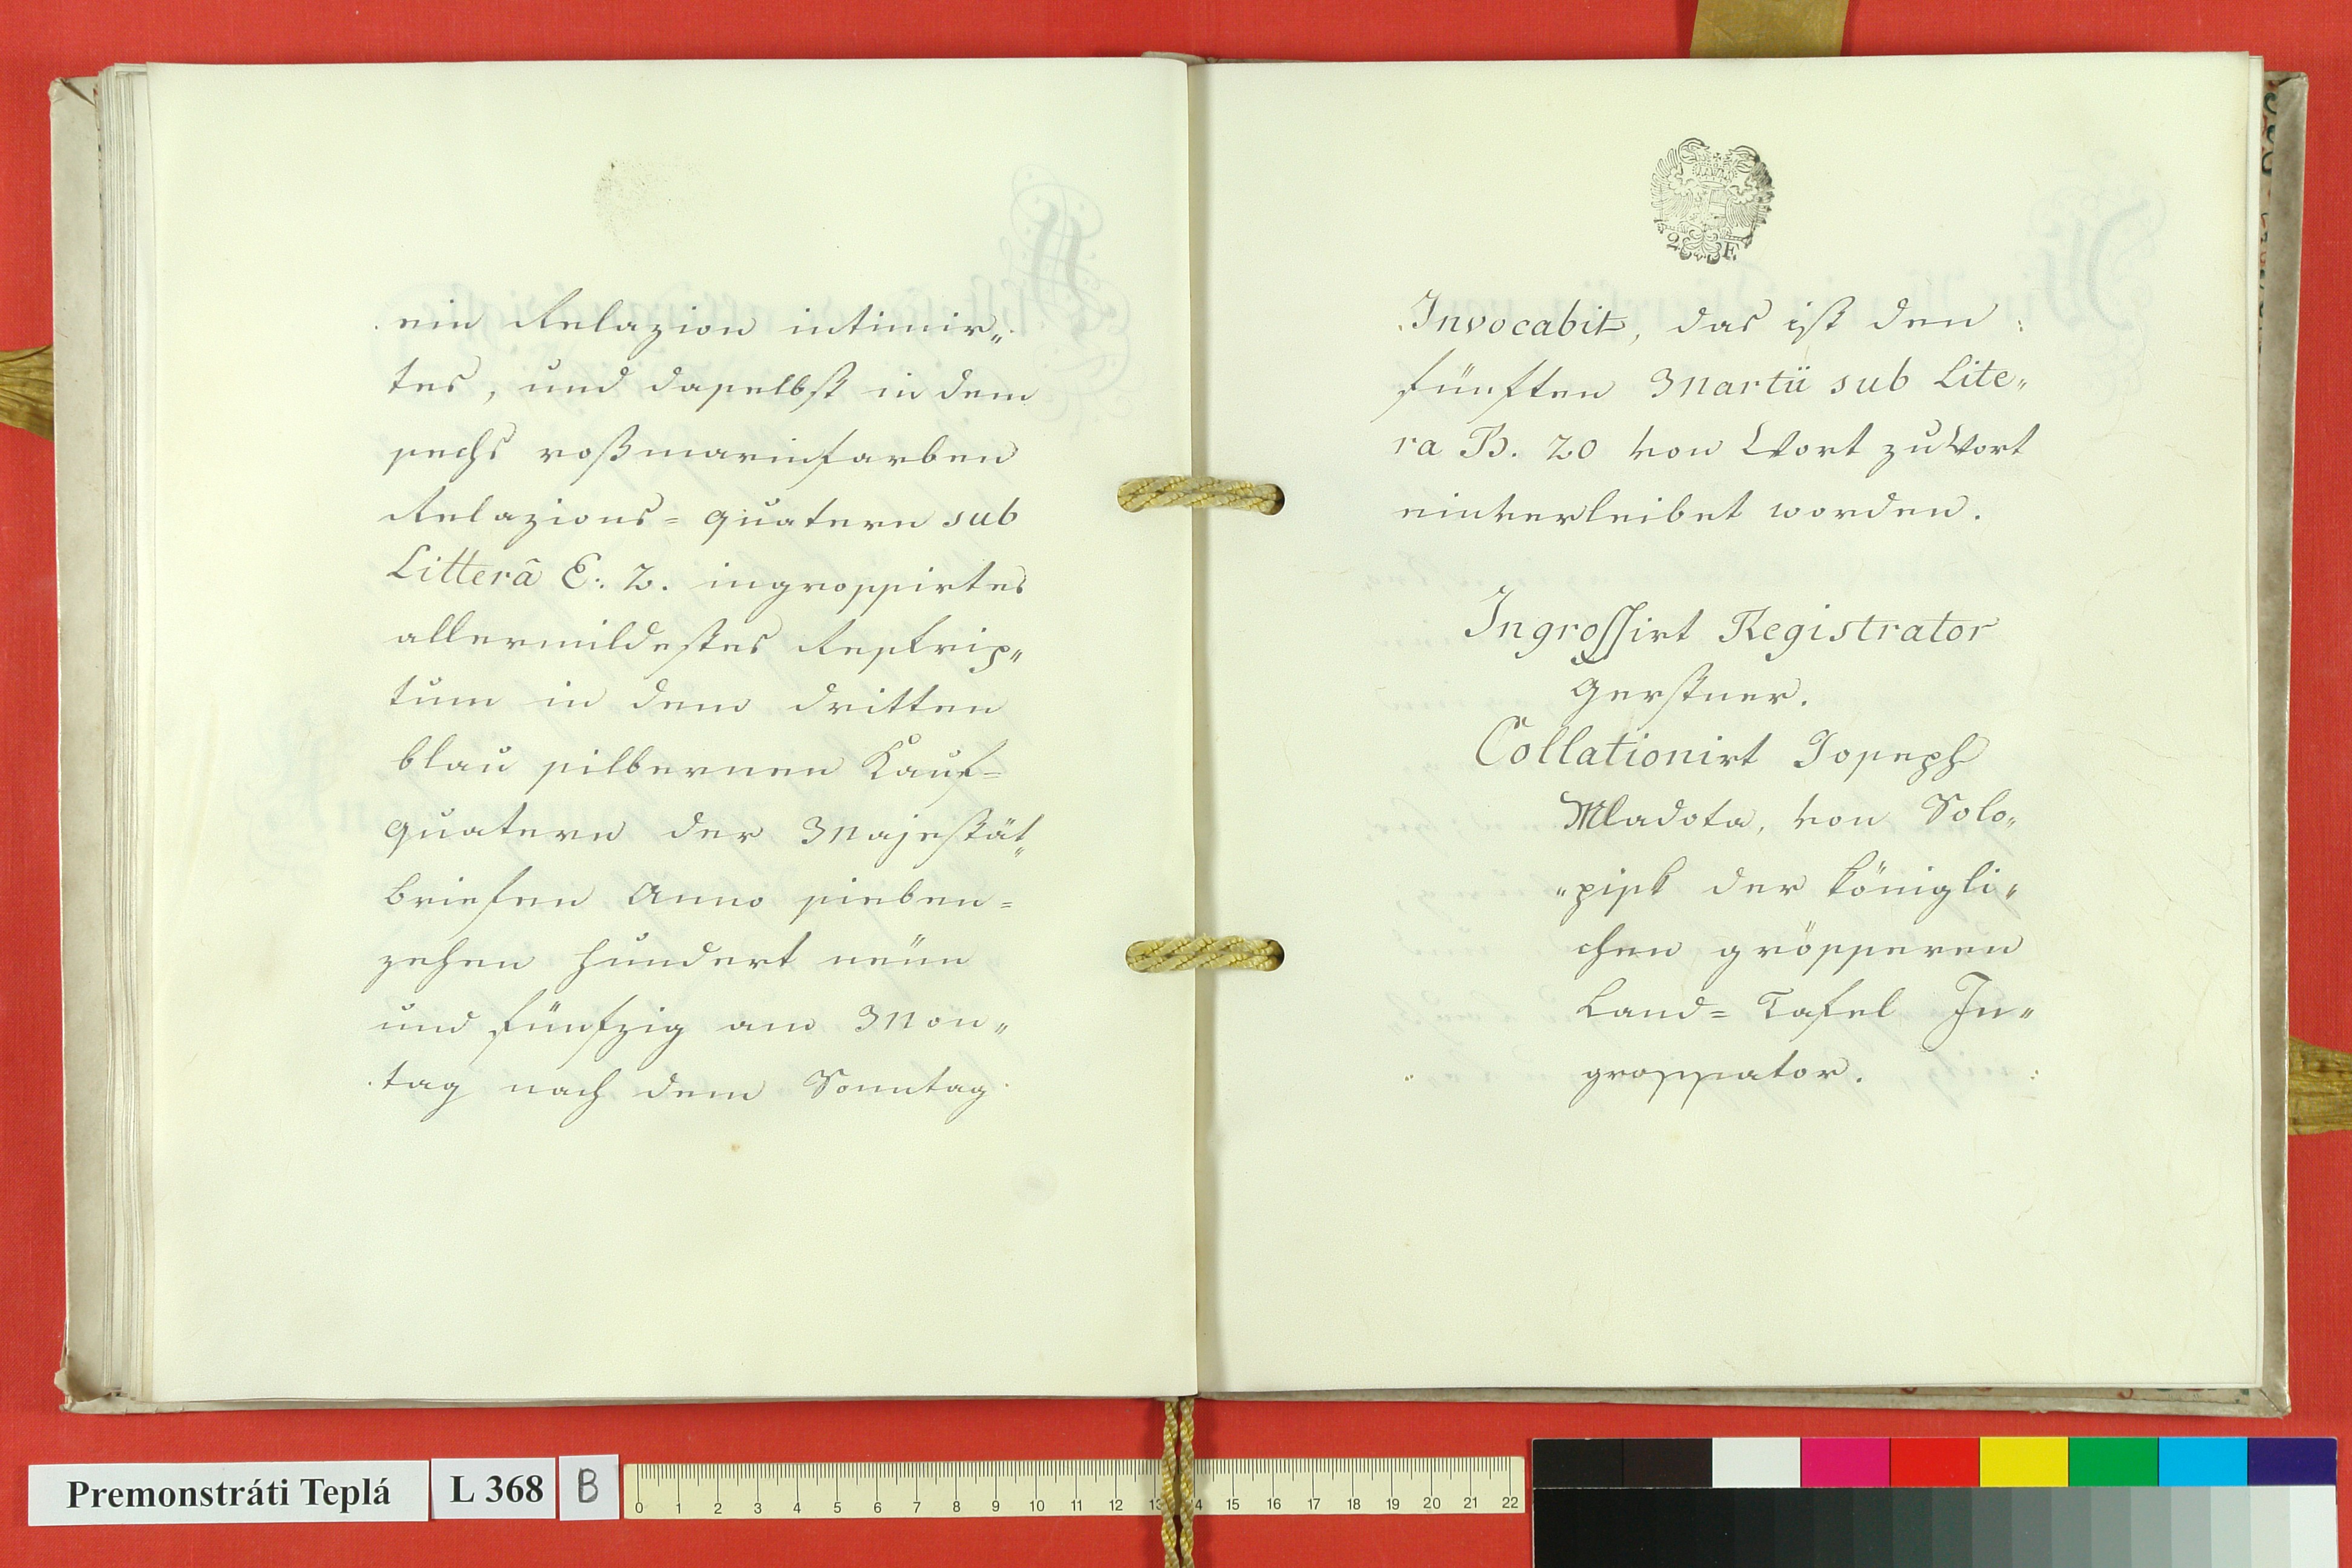 ein Relazion intimir„
tes, und daselbst in dem
sechs roßmarinfarben
Relazions= quatern sub
Litterâ E: 2. ingrossirtes
allermildestes Reskrip„
tum in dem dritten
blau silbernen Kauf=
quatern der Majestät„
briefen Anno sieben=
zehen hundert neün
und fünfzig am Mon„
tag nach dem Sonntag
Invocabit, das ist den
fünften Martii sub Lite„
ra B. 20 von Wort zu Wort
einverleibet worden.
Ingrossirt Registrator
Gerstner.
Collationirt Joseph
Mladota, von Solo„
„pisk der königli„
chen grösseren
Land= Tafel In„
grossator.
Premonstráti Teplá
L 368
B
0 1 2 3 4 5 6 7 8 9 10 11 12 13 14 15 16 17 18 19 20 21 22